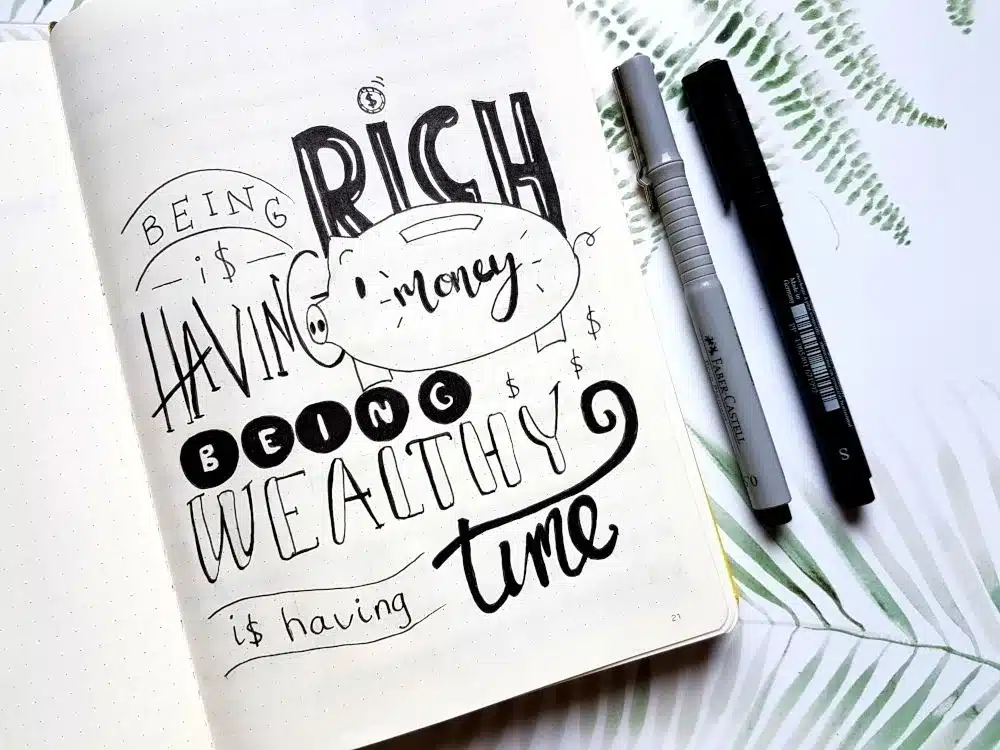 BEING
RiCH
i$
HAVING
money
BEING
WEALTHY
i$ having
time
$
$
$
$
21
FABER-CASTELL
S